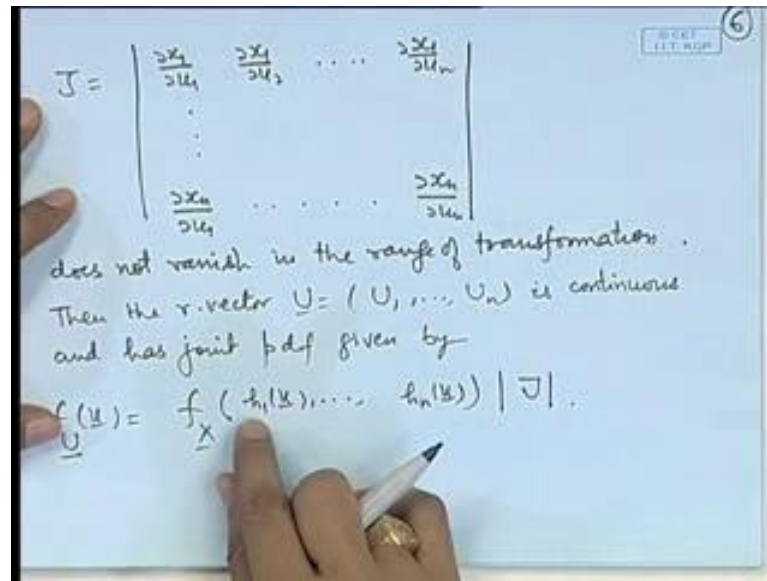 6
© CET
I.I.T. KGP
J = | ∂x₁/∂u₁ ∂x₁/∂u₂ .... ∂x₁/∂uₙ |
∂xₙ/∂u₁ ..... ∂xₙ/∂uₙ
does not vanish in the range of transformation.
Then the r.vector U = (U₁, ..., Uₙ) is continuous
and has joint pdf given by
f_U(u) = f_X(h₁(u), ..., hₙ(u)) |J|.